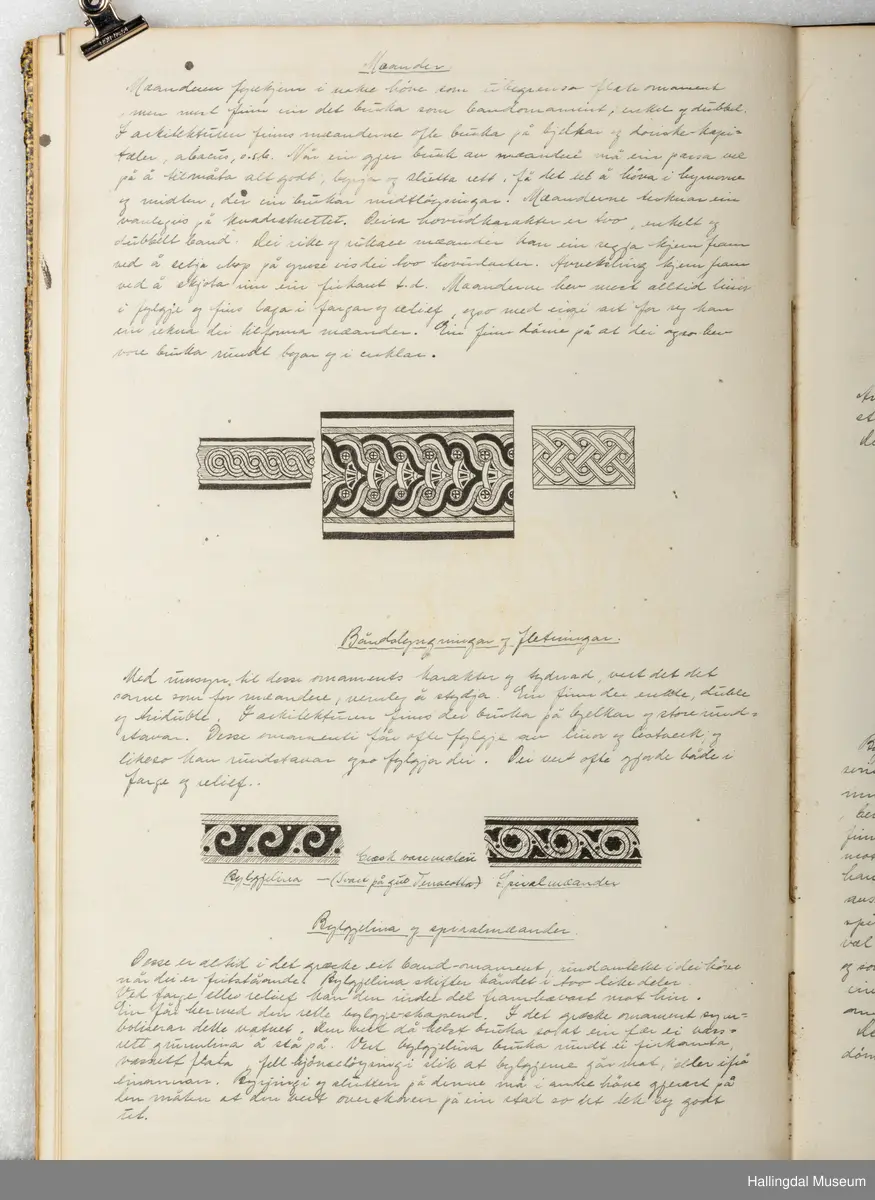 Mæander.
Mæanderen fyrekjem i nokre høve som ubegrensa flateornament
men mest finn ein det bruka som bandornament, enkel og dubbel.
I arkitekturen finns mæanderne ofte bruka på bjelkar og doriske kapi-
tæler, abacus, o.s.b. Når ein gjer bruk av mæandere må ein passa vel
på å tilmåta alt godt, byrja og slutta rett, få det til å høva i hyrnorne
og midten, der ein brukar midtløysingar. Mæanderne teiknar ein
vanlegvis på kvadratnettet. Deira hovudkarakter er tvo, enkelt og
dubbelt band. Dei rike og rikare mæander kan ein segja kjem fram
ved å setja ihop på ymse vis dei tvo hovudarter. Avveksling kjem fram
ved å skjota inn ein firkant t.d. Mæanderne hev mest alltid linor
i fylgje og fins laga i fargar og relief, ogso med eigi art for seg kan
ein rekna dei tilforma mæander. Ein finn døme på at dei ogso hev
vore bruka rundt bogar og i cirklar.
Båndslyngningar og fletningar.
Med umsyn til desse ornaments karakter og tydnad, vert det det
same som for mæandere, nemleg å stydja. Ein finn dei enkle, duble
og triduble. I arkitekturen finns dei bruka på bjelkar og store rund-
stavar. Desse ornamenti får ofte fylgje av linor og listverk, og
likeso kan rundstavar ogso fylgja dei. Dei vert ofte gjorde både i
farge og relief.
Græsk vase maleri
Bylgjelina — (Svart på gul Terracotta) Spiralmæander
Bylgjelina og spiralmæander.
Desse er altid i det græske eit band-ornament, undanteke i dei høve
når dei er fritståande. Bylgjelina skifter båndet i tvo like deler.
Ved farge eller relief kan den indre del framhævast mot hin.
Ein får hermed den rette bylgje-skapend. I det græske ornament sym-
boliserar dette vatnet. Den vert då helst bruka so at ein fær ei vass-
rett grunnlina å stå på. Vert bylgjelina bruka rundt ei firkanta,
vassrett flata, fell hjørneløysingi slik at bylgjerne går mot, eller ifrå
einannan. Byrjingi og slutten på denne må i andre høve gjerast på
den måten at den vert overskoren på ein stad so det tek seg godt
ut.
Hallingdal Museum